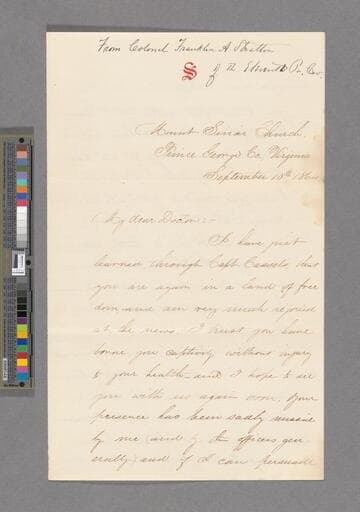 From Colonel Franklin A Stratton
S
of the Pa. Cav.
Mount Sinai Church,
Prince George Co. Virginia
September 18th
My dear Doctor:-
I have just
learned through Capt that
you are again in a land of free
dom and am very much rejoiced
at the news. I trust you have
borne your captivity without injury
to your health and I hope to see
you with us again soon. Your
presence has been sadly missed
by me and by the officers gen
erally; and if I can persuade